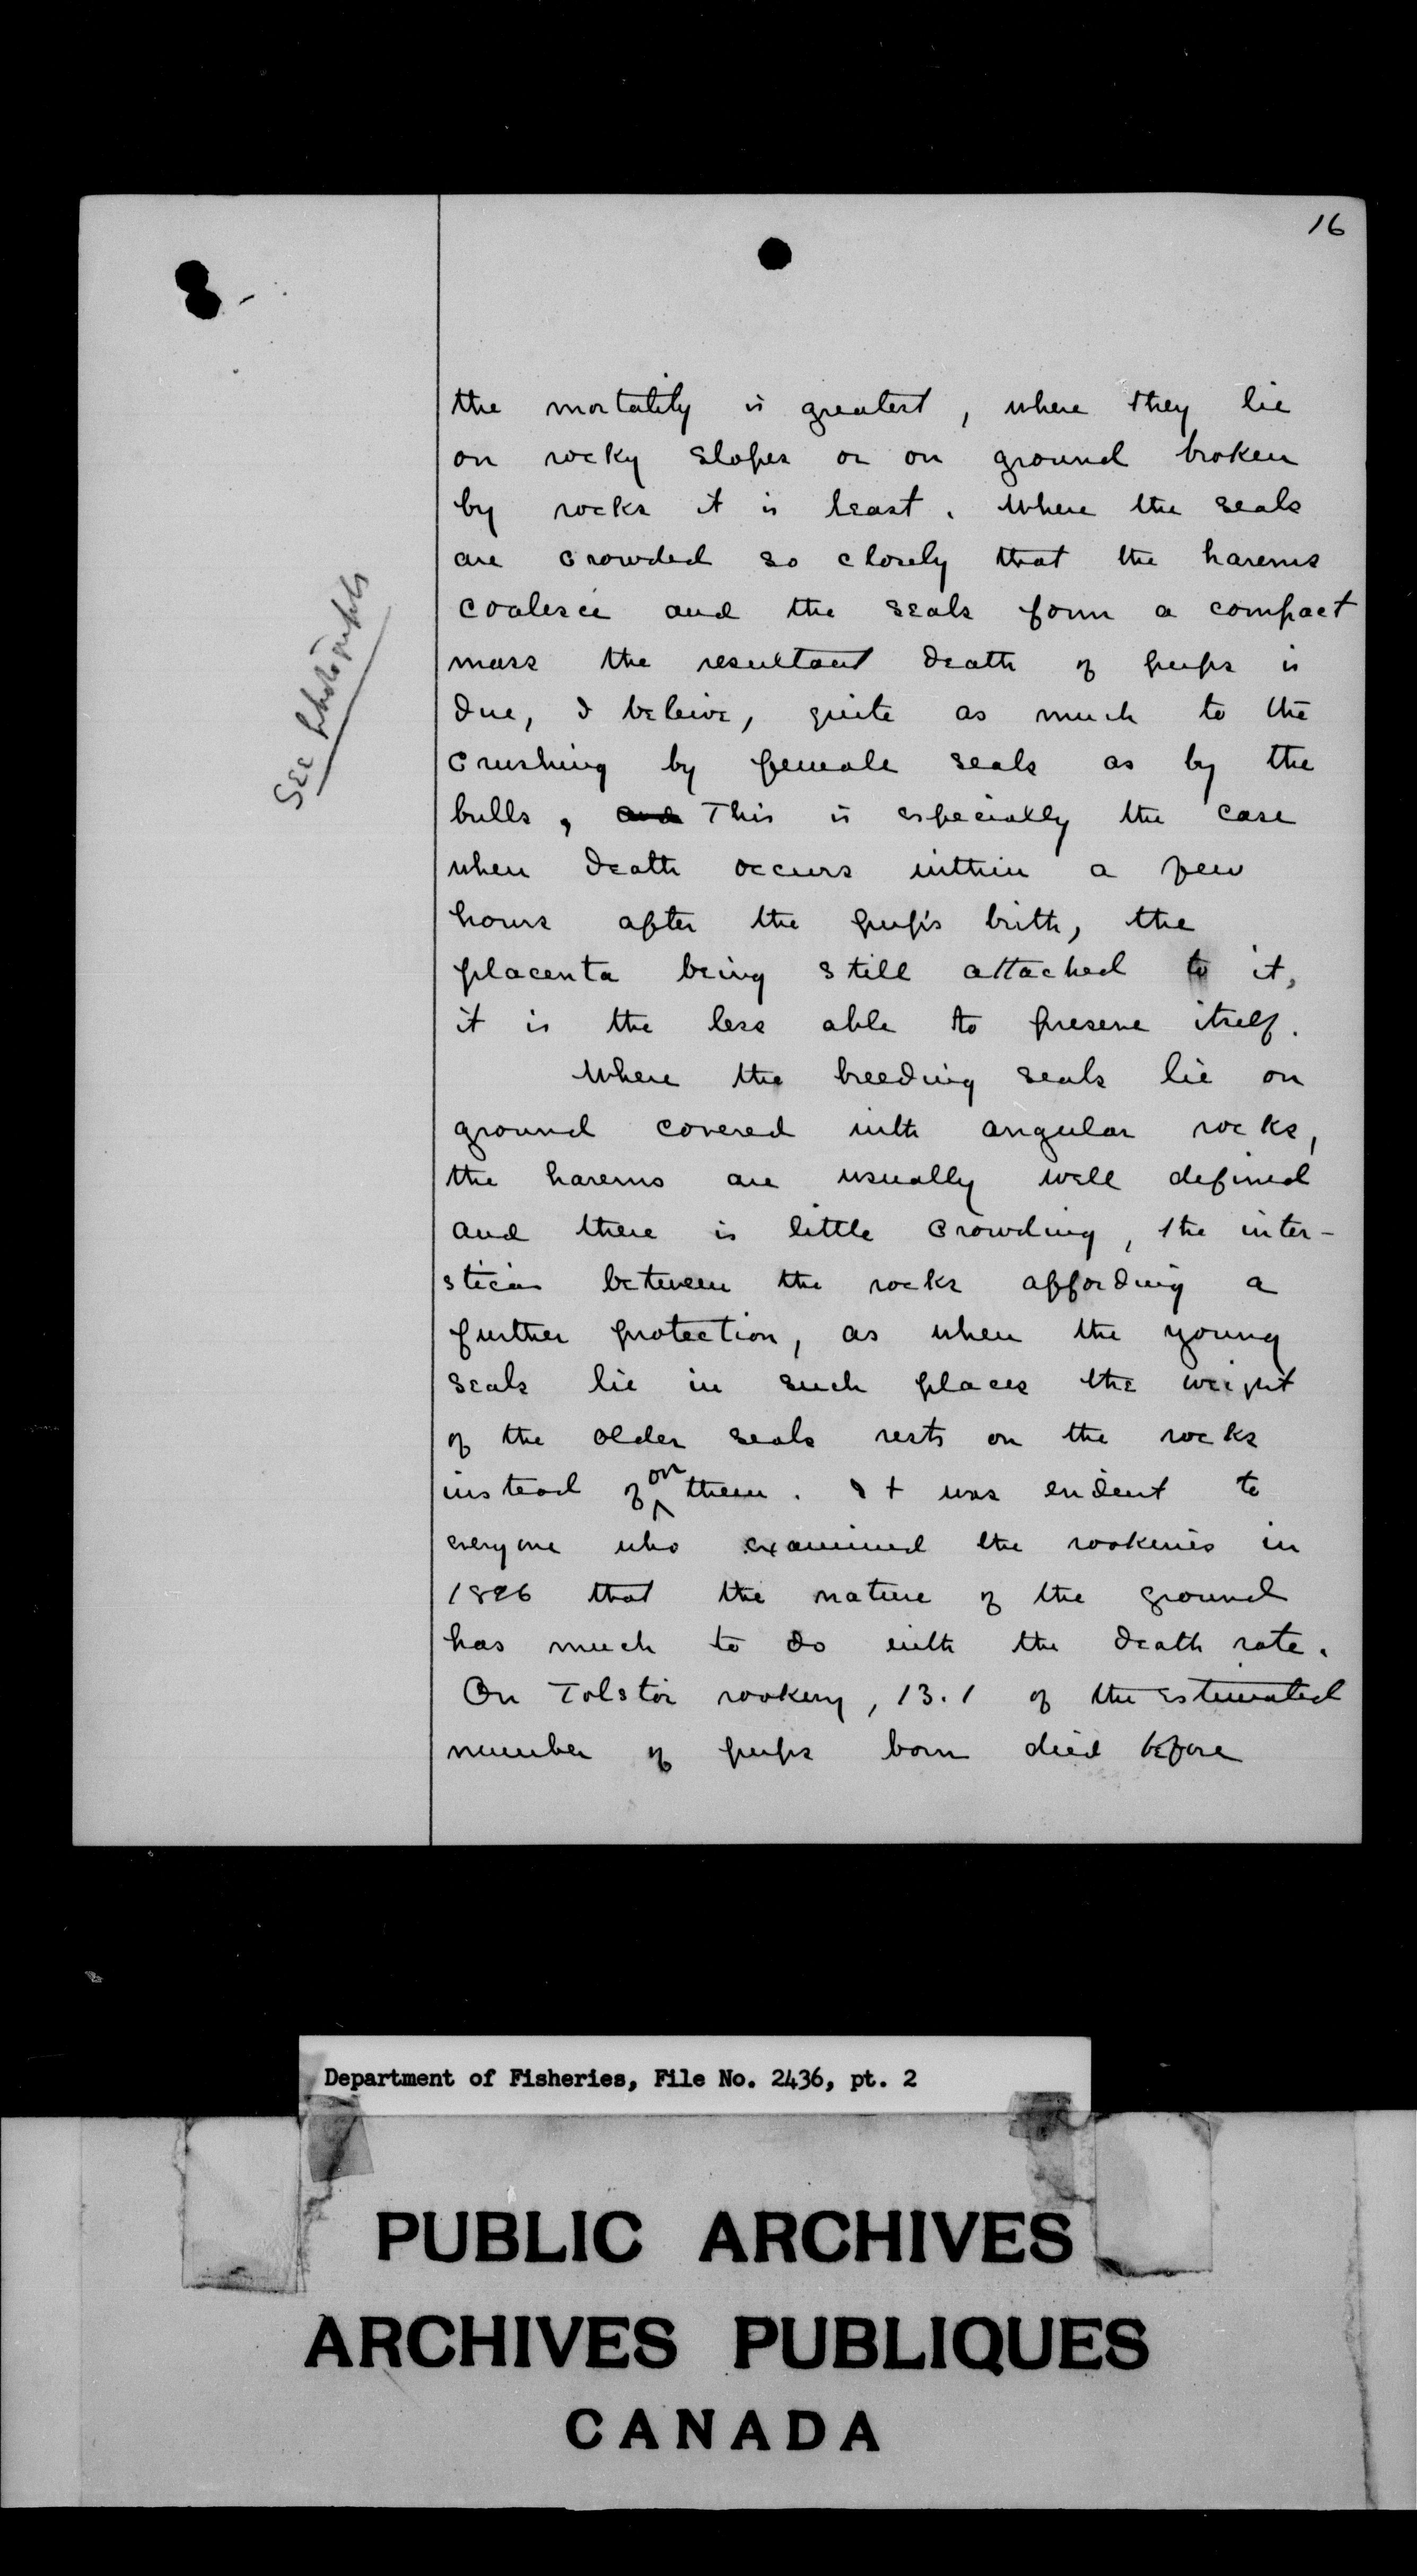 16
the mortality is greatest, where they lie
on rocky slopes or on ground broken
by rocks it is least. Where the seals
are crowded so closely that the harems
coalesce and the seals form a compact
mass the resultant death of pups is
due, I beleive, quite as much to the
crushing by female seals as by the
bulls, and This is especially the case
when death occurs within a few
hours after the pup's birth, the
placenta being still attached to it,
it is the less able to preserve itself.
Where the breeding seals lie on
ground covered with angular rocks,
the harems are usually well defined
and there is little crowding, the inter-
stices between the rocks affording a
further protection, as when the young
seals lie in such places the weight
of the older seals rests on the rocks
instead of on them. It was evident to
everyone who examined the rookeries in
1896 that the nature of the ground
has much to do with the death rate.
On Tolstoi rookery, 13.1 of the estimated
number of pups born died before
See photographs
Department of Fisheries, File No. 2436, pt. 2
PUBLIC ARCHIVES
ARCHIVES PUBLIQUES
CANADA